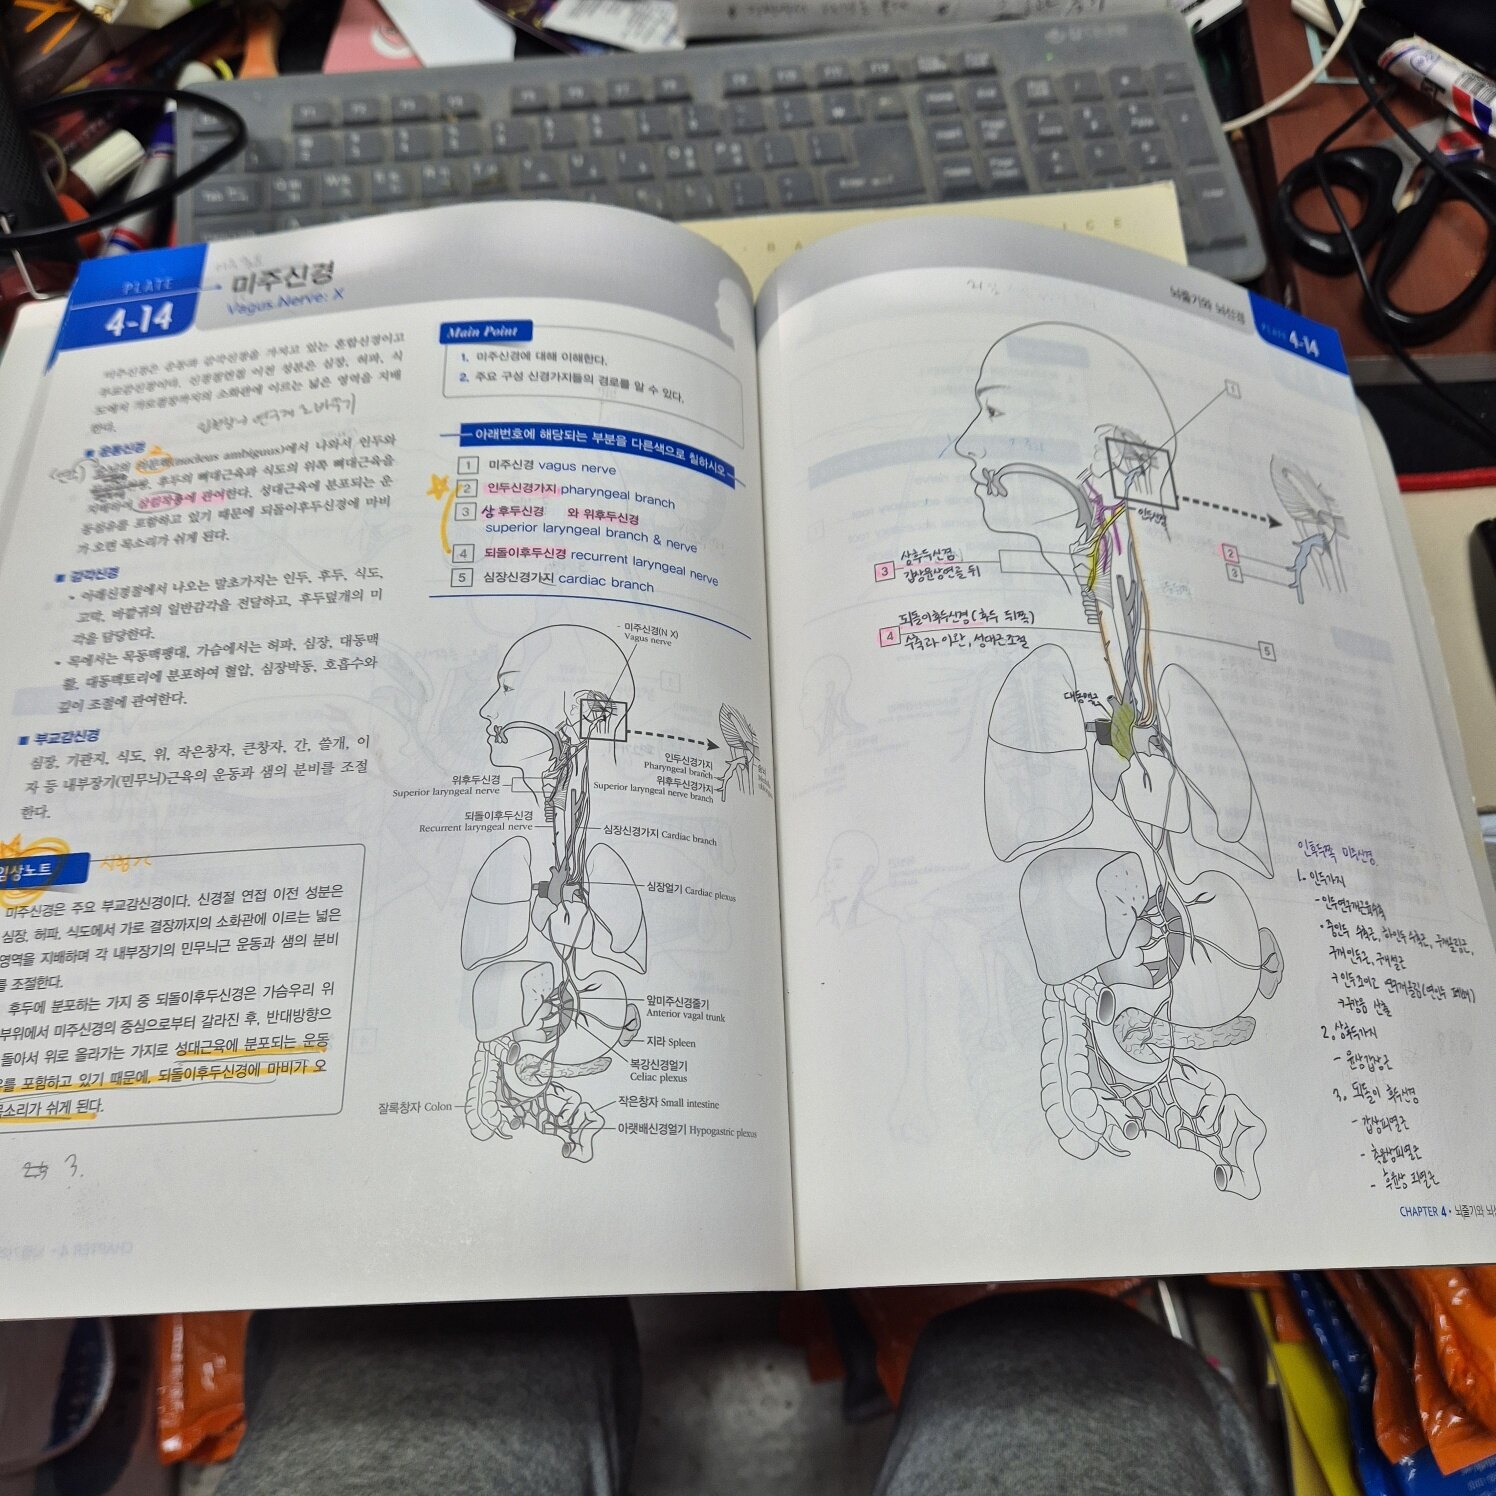 PLATE
4-14
미주신경
Vagus Nerve: X
미주신경은 운동과 감각신경을 가지고 있는 혼합신경이고
부교감신경이다. 신경절연접 이전 성분은 심장, 허파, 식
도에서 가로결장까지의 소화관에 이르는 넓은 영역을 지배
한다.
■ 운동신경
(nucleus ambiguus)에서 나와서 인두와
후두의 뼈대근육과 식도의 위쪽 뼈대근육을
지배하여 삼킴작용에 관여한다. 성대근육에 분포되는 운
동섬유를 포함하고 있기 때문에 되돌이후두신경에 마비
가 오면 목소리가 쉬게 된다.
■ 감각신경
• 아래신경절에서 나오는 말초가지는 인두, 후두, 식도,
고막, 바깥귀의 일반감각을 전달하고, 후두덮개의 미
각을 담당한다.
• 목에서는 목동맥팽대, 가슴에서는 허파, 심장, 대동맥
활, 대동맥토리에 분포하여 혈압, 심장박동, 호흡수와
깊이 조절에 관여한다.
■ 부교감신경
심장, 기관지, 식도, 위, 작은창자, 큰창자, 간, 쓸개, 이
자 등 내부장기(민무늬)근육의 운동과 샘의 분비를 조절
한다.
임상노트
시험기
미주신경은 주요 부교감신경이다. 신경절 연접 이전 성분은
심장, 허파, 식도에서 가로 결장까지의 소화관에 이르는 넓은
영역을 지배하며 각 내부장기의 민무늬근 운동과 샘의 분비
를 조절한다.
후두에 분포하는 가지 중 되돌이후두신경은 가슴우리 위
부위에서 미주신경의 중심으로부터 갈라진 후, 반대방향으
돌아서 위로 올라가는 가지로 성대근육에 분포되는 운동
를 포함하고 있기 때문에, 되돌이후두신경에 마비가 오
목소리가 쉬게 된다.
3.
Main Point
1. 미주신경에 대해 이해한다.
2. 주요 구성 신경가지들의 경로를 알 수 있다.
아래번호에 해당되는 부분을 다른색으로 칠하시오
1 미주신경 vagus nerve
2 인두신경가지 pharyngeal branch
3 상 후두신경 와 위후두신경
superior laryngeal branch & nerve
4 되돌이후두신경 recurrent laryngeal nerve
5 심장신경가지 cardiac branch
미주신경(N X)
Vagus nerve
인두신경가지
Pharyngeal branch
위후두신경가지
Superior laryngeal nerve branch
위후두신경
Superior laryngeal nerve
되돌이후두신경
Recurrent laryngeal nerve
심장신경가지 Cardiac branch
심장얼기 Cardiac plexus
앞미주신경줄기
Anterior vagal trunk
지라 Spleen
복강신경얼기
Celiac plexus
작은창자 Small intestine
잘록창자 Colon
아랫배신경얼기 Hypogastric plexus
뇌줄기와 뇌신경
PLATE 4-14
1
인두신경
2
3
3 상후두신경
갑상윤상연골 뒤
4 되돌이후두신경(후두 뒤쪽)
수축과 이완, 성대근조절
5
인후두쪽 미주신경
1. 인두가지
- 인두연구개근육수축
• 중인두 수축근, 하인두수축근, 구개올림근,
구개인두근, 구개설근
2. 상후두가지
- 윤상갑상근
3. 되돌이 후두신경
- 갑상피열근
- 측윤상피열근
- 후윤상 피열근
CHAPTER 4 • 뇌줄기와 뇌신